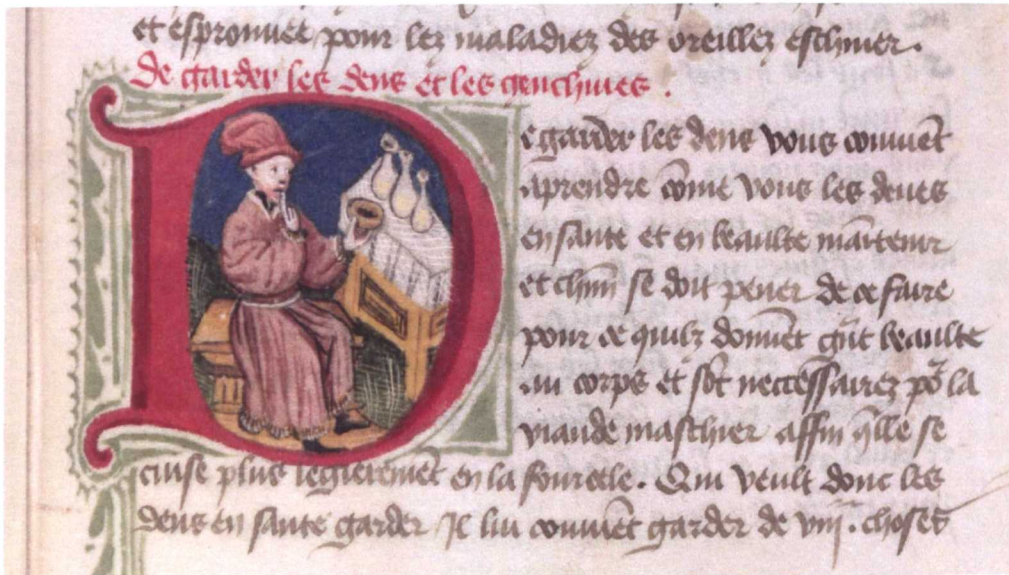 et esprouuée pour lez maladiez des oreillez eschiuer.
De garder les dens et les genchiues.
De garder les dens vous couuiēt
aprendre cōme vous les deues
en sante et en beaulte maītenir
et chūn se doit pener de ce faire
pour ce quilz donnēt grāt beaulte
au corps et sōt neccessairez po' la
viande maschier affin q̄lle se
cuise plus legierement en la fourcele. Qui veult donc les
dens en sante garder Il lui couuiēt garder de viij. choses